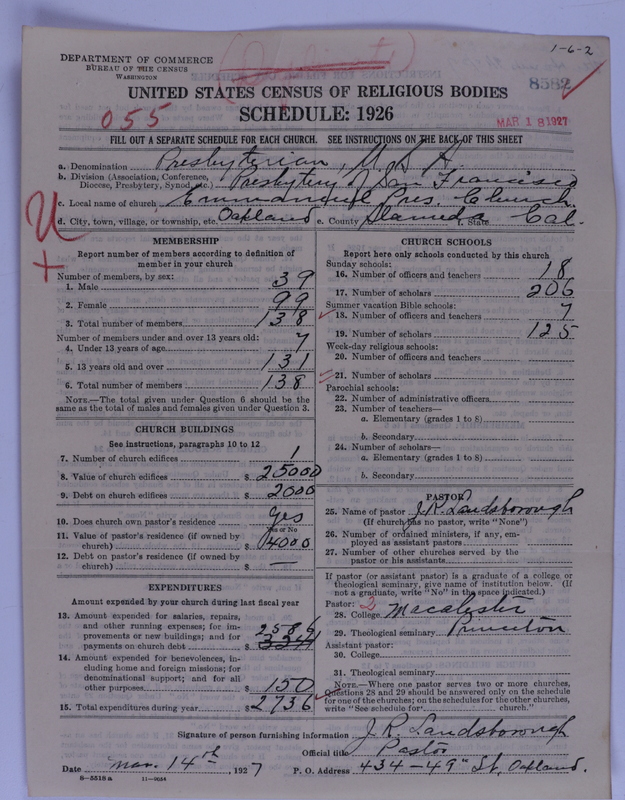 1-6-2
DEPARTMENT OF COMMERCE
BUREAU OF THE CENSUS
WASHINGTON
8582
UNITED STATES CENSUS OF RELIGIOUS BODIES
SCHEDULE: 1926
055
MAR 18 1927
FILL OUT A SEPARATE SCHEDULE FOR EACH CHURCH. SEE INSTRUCTIONS ON THE BACK OF THIS SHEET
a. Denomination Presbyterian, U.S.A.
b. Division (Association, Conference, Diocese, Presbytery, Synod, etc.) Presbytery of San Francisco
c. Local name of church Emmanuel Pres. Church
d. City, town, village, or township, etc. Oakland e. County Alameda f. State Cal.
MEMBERSHIP
Report number of members according to definition of
member in your church
Number of members, by sex:
1. Male 39
2. Female 99
3. Total number of members 138
Number of members under and over 13 years old:
4. Under 13 years of age 7
5. 13 years old and over 131
6. Total number of members 138
NOTE.—The total given under Question 6 should be
same as the total of males and females given under Question 3.
CHURCH BUILDINGS
See instructions, paragraphs 10 to 12
7. Number of church edifices 1
8. Value of church edifices $ 25000
9. Debt on church edifices $ 2000
10. Does church own pastor's residence Yes
Yes or No
11. Value of pastor's residence (if owned by
church) $ 4000
12. Debt on pastor's residence (if owned by
church) $ —
EXPENDITURES
Amount expended by your church during last fiscal year
13. Amount expended for salaries, repairs,
and other running expenses; for im-
provements or new buildings; and for
payments on church debt $ 2586
14. Amount expended for benevolences, in-
cluding home and foreign missions; for
denominational support; and for all
other purposes $ 150
15. Total expenditures during year $ 2736
CHURCH SCHOOLS
Report here only schools conducted by this church
Sunday schools:
16. Number of officers and teachers 18
17. Number of scholars 206
Summer vacation Bible schools:
18. Number of officers and teachers 7
19. Number of scholars 125
Week-day religious schools:
20. Number of officers and teachers
21. Number of scholars
Parochial schools:
22. Number of administrative officers
23. Number of teachers—
a. Elementary (grades 1 to 8)
b. Secondary
24. Number of scholars—
a. Elementary (grades 1 to 8)
b. Secondary
PASTOR
25. Name of pastor J. R. Landsborough
(If church has no pastor, write "None")
26. Number of ordained ministers, if any, em-
ployed as assistant pastors
27. Number of other churches served by the
pastor or his assistants
If pastor (or assistant pastor) is a graduate of a college or
theological seminary, give name of institution below. (If
not a graduate, write "No" in the space indicated.)
Pastor: 2
28. College Macalester
29. Theological seminary Princeton
Assistant pastor:
30. College
31. Theological seminary
NOTE.—Where one pastor serves two or more churches,
Questions 28 and 29 should be answered only on the schedule
for one of the churches; on the schedules for the other churches,
write "See schedule for church."
Signature of person furnishing information J. R. Landsborough
Official title Pastor
Date Mar. 14th, 1927 P. O. Address 434-49th St, Oakland.
8-5518a 11-9054